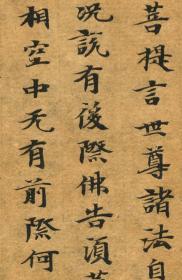 菩提言世尊諸法自
況說有後際佛告須菩
相空中无有前際何